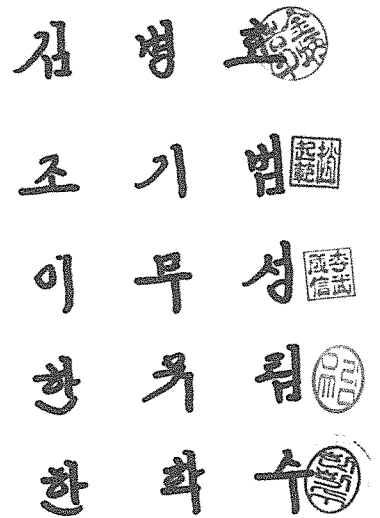 김 병 효
조 기 범
이 무 성
한 옥 림
한 학 수